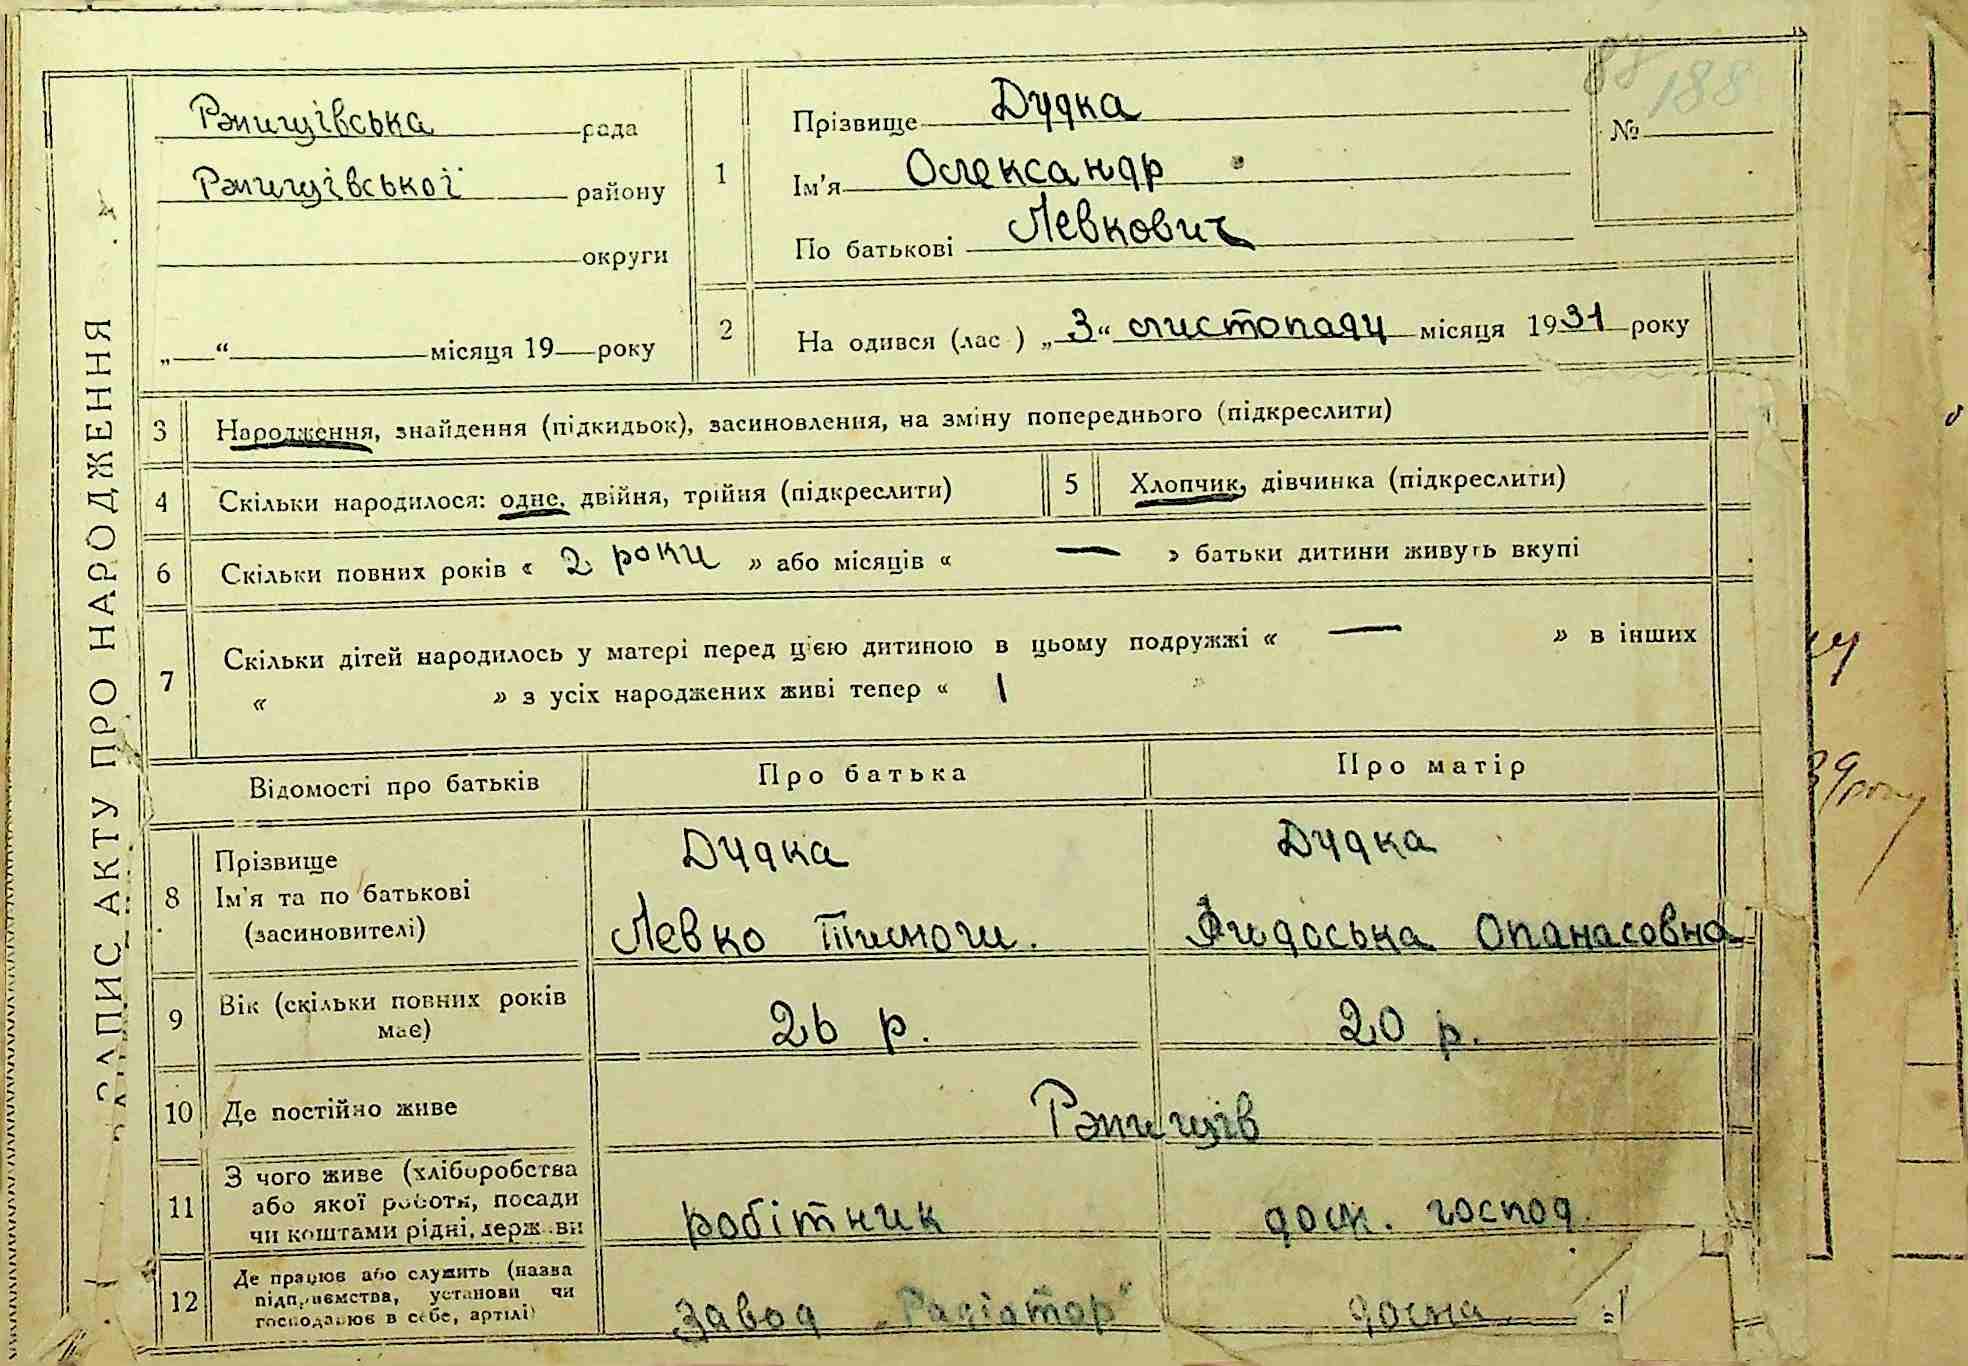 ЗАПИС АКТУ ПРО НАРОДЖЕННЯ
Ржищівська рада
Ржищівської району
округи
„ “ місяця 19 року
1
Прізвище Дудка
Ім'я Олександр
По батькові Левкович
88
188
№
2
На одився (лас ) „3“ листопаду місяця 1931 року
3 Народження, знайдення (підкидьок), засиновлення, на зміну попереднього (підкреслити)
4 Скільки народилося: одне, двійня, трійня (підкреслити)
5 Хлопчик, дівчинка (підкреслити)
6 Скільки повних років « 2 роки » або місяців « — » батьки дитини живуть вкупі
7 Скільки дітей народилось у матері перед цією дитиною в цьому подружжі « — » в інших
« » з усіх народжених живі тепер « 1
Відомості про батьків Про батька Про матір
8
Прізвище
Ім'я та по батькові
(засиновителі)
Дудка
Левко Тимоги.
Дудка
Опанасовна
9
Вік (скільки повних років
має)
26 р.
20 р.
10 Де постійно живе Ржищів
11
З чого живе (хліборобства
або якої роботи, посади
чи коштами рідні, держави
робітник
дом. господ.
12
Де працює або служить (назва
підприємства, установи чи
господарює в себе, артілі)
завод „Радіатор“
дома
39 року